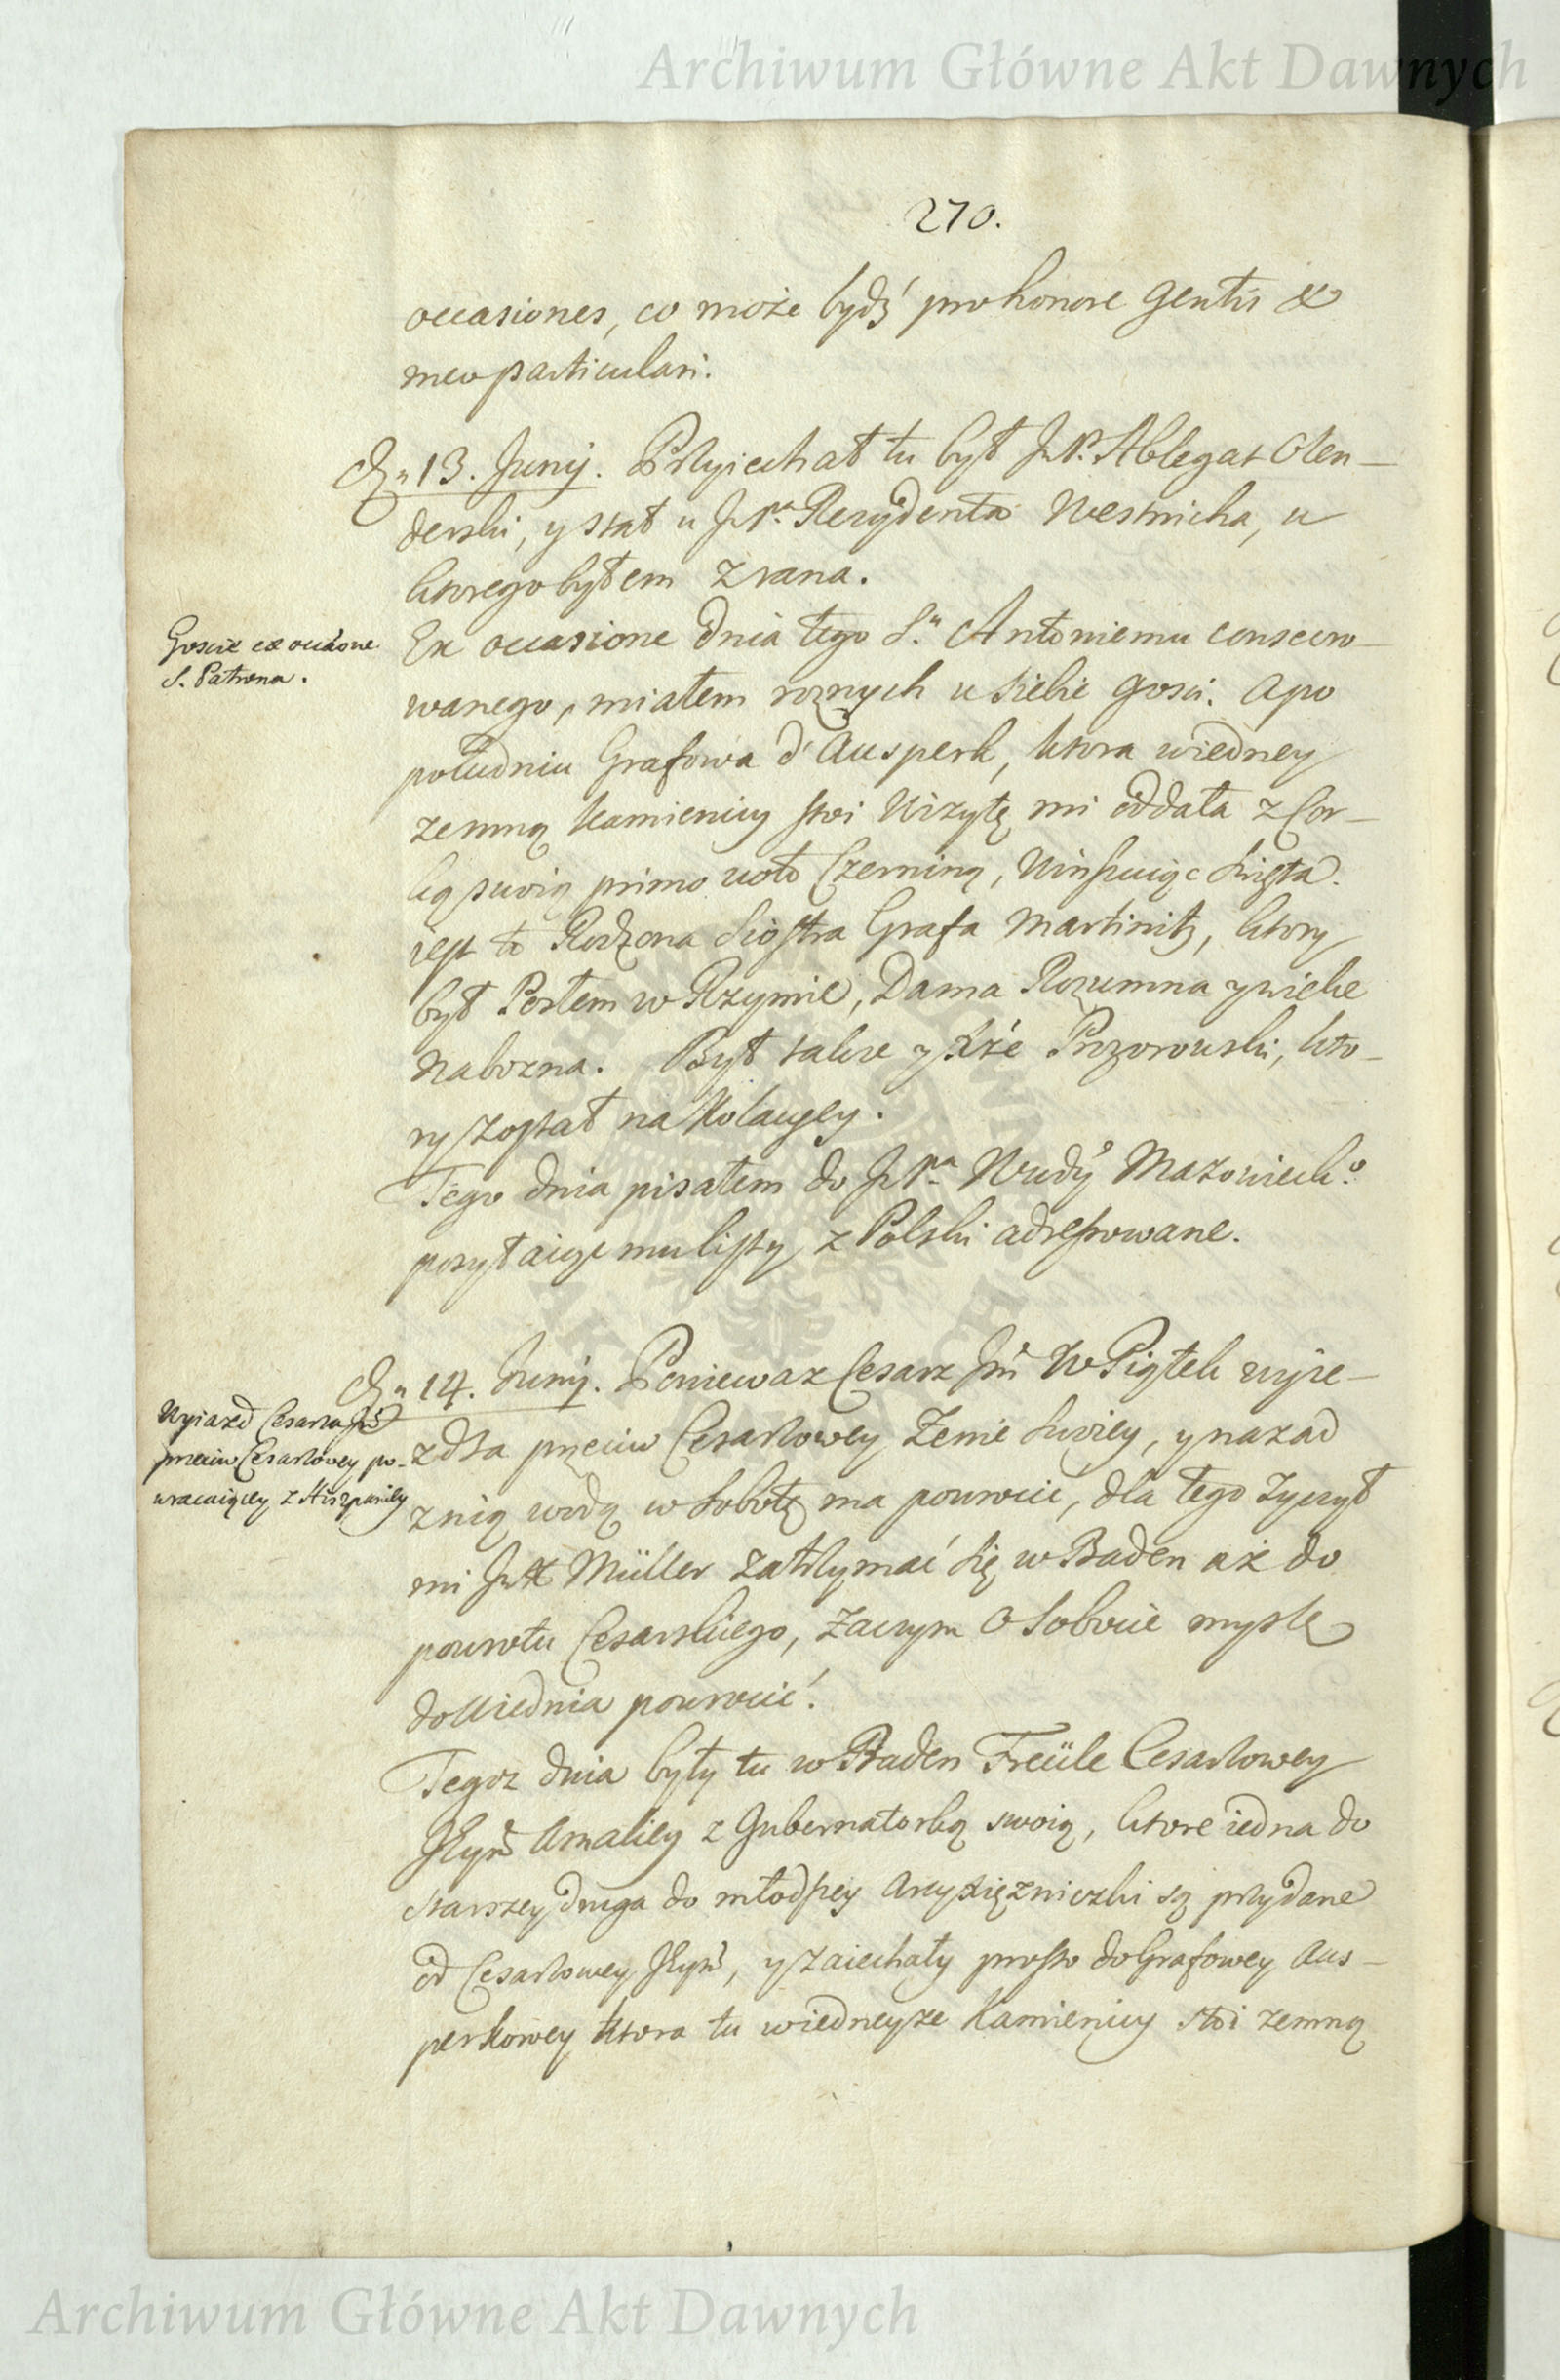 Archiwum Główne Akt Dawnych
270.
occasiones, co może bydź pro honore Gentis et
meo particulari.
Dn 13. Junij. Przyiechał tu był JP. Ablegat Olen-
derski, y stał u JPa Rezydenta Westnicha, u
ktorego byłem zrana.
Goscie ex occasione
S. Patrona.
Ex occasione dnia tego S.n Antoniemu consecro-
wanego, miałem roznych u siebie gosci. A po
południu Grafowa d'Ausperk, ktora wiedney
zemną kamienicy stoi Wizytę mi oddała z Cor-
ką swoią primo voto Czerniną, Winszuiąc Swięta.
iest to Rodzona Siostra Grafa Martinitz, ktory
był Posłem w Rzymie, Dama Rozumna y wielce
Nabozna. Był takze y Xże Prozorowski, kto-
ry został na Kolacyey.
Tego dnia pisałem do JPa Wwdy Mazowieck:o
posyłaiąc mu listy z Polski adressowane.
Dn 14. Junij. Poniewaz Cesarz Jmć W Piątek wyie-
Wyiazd Cesarza Jmć
przeciw Cesarzowey po-
wracaiącey z Hiszpaniey
zdza przeciw Cesarzowey Żenie Swoiey, y nazad
znią wodą w Sobotę ma powrocic, dla tego zyczył
mi JX Müller zatrzymać się w Baden aż do
powrotu Cesarskiego, zaczym o Sobocie myslę
do Wiednia powrocić.
Tegoz dnia były tu w Baden Freüle Cesarzowey
Jeymć Amaliey z Gubernatorką swoią, ktore iedna do
starszey druga do młodszey Arcyxiężniczki są przydane
od Cesarzowey Jeymć, y zaiechały prosto do Grafowey Aus-
perkowey ktora tu wiedneyze Kamienicy stoi zemną
Archiwum Główne Akt Dawnych